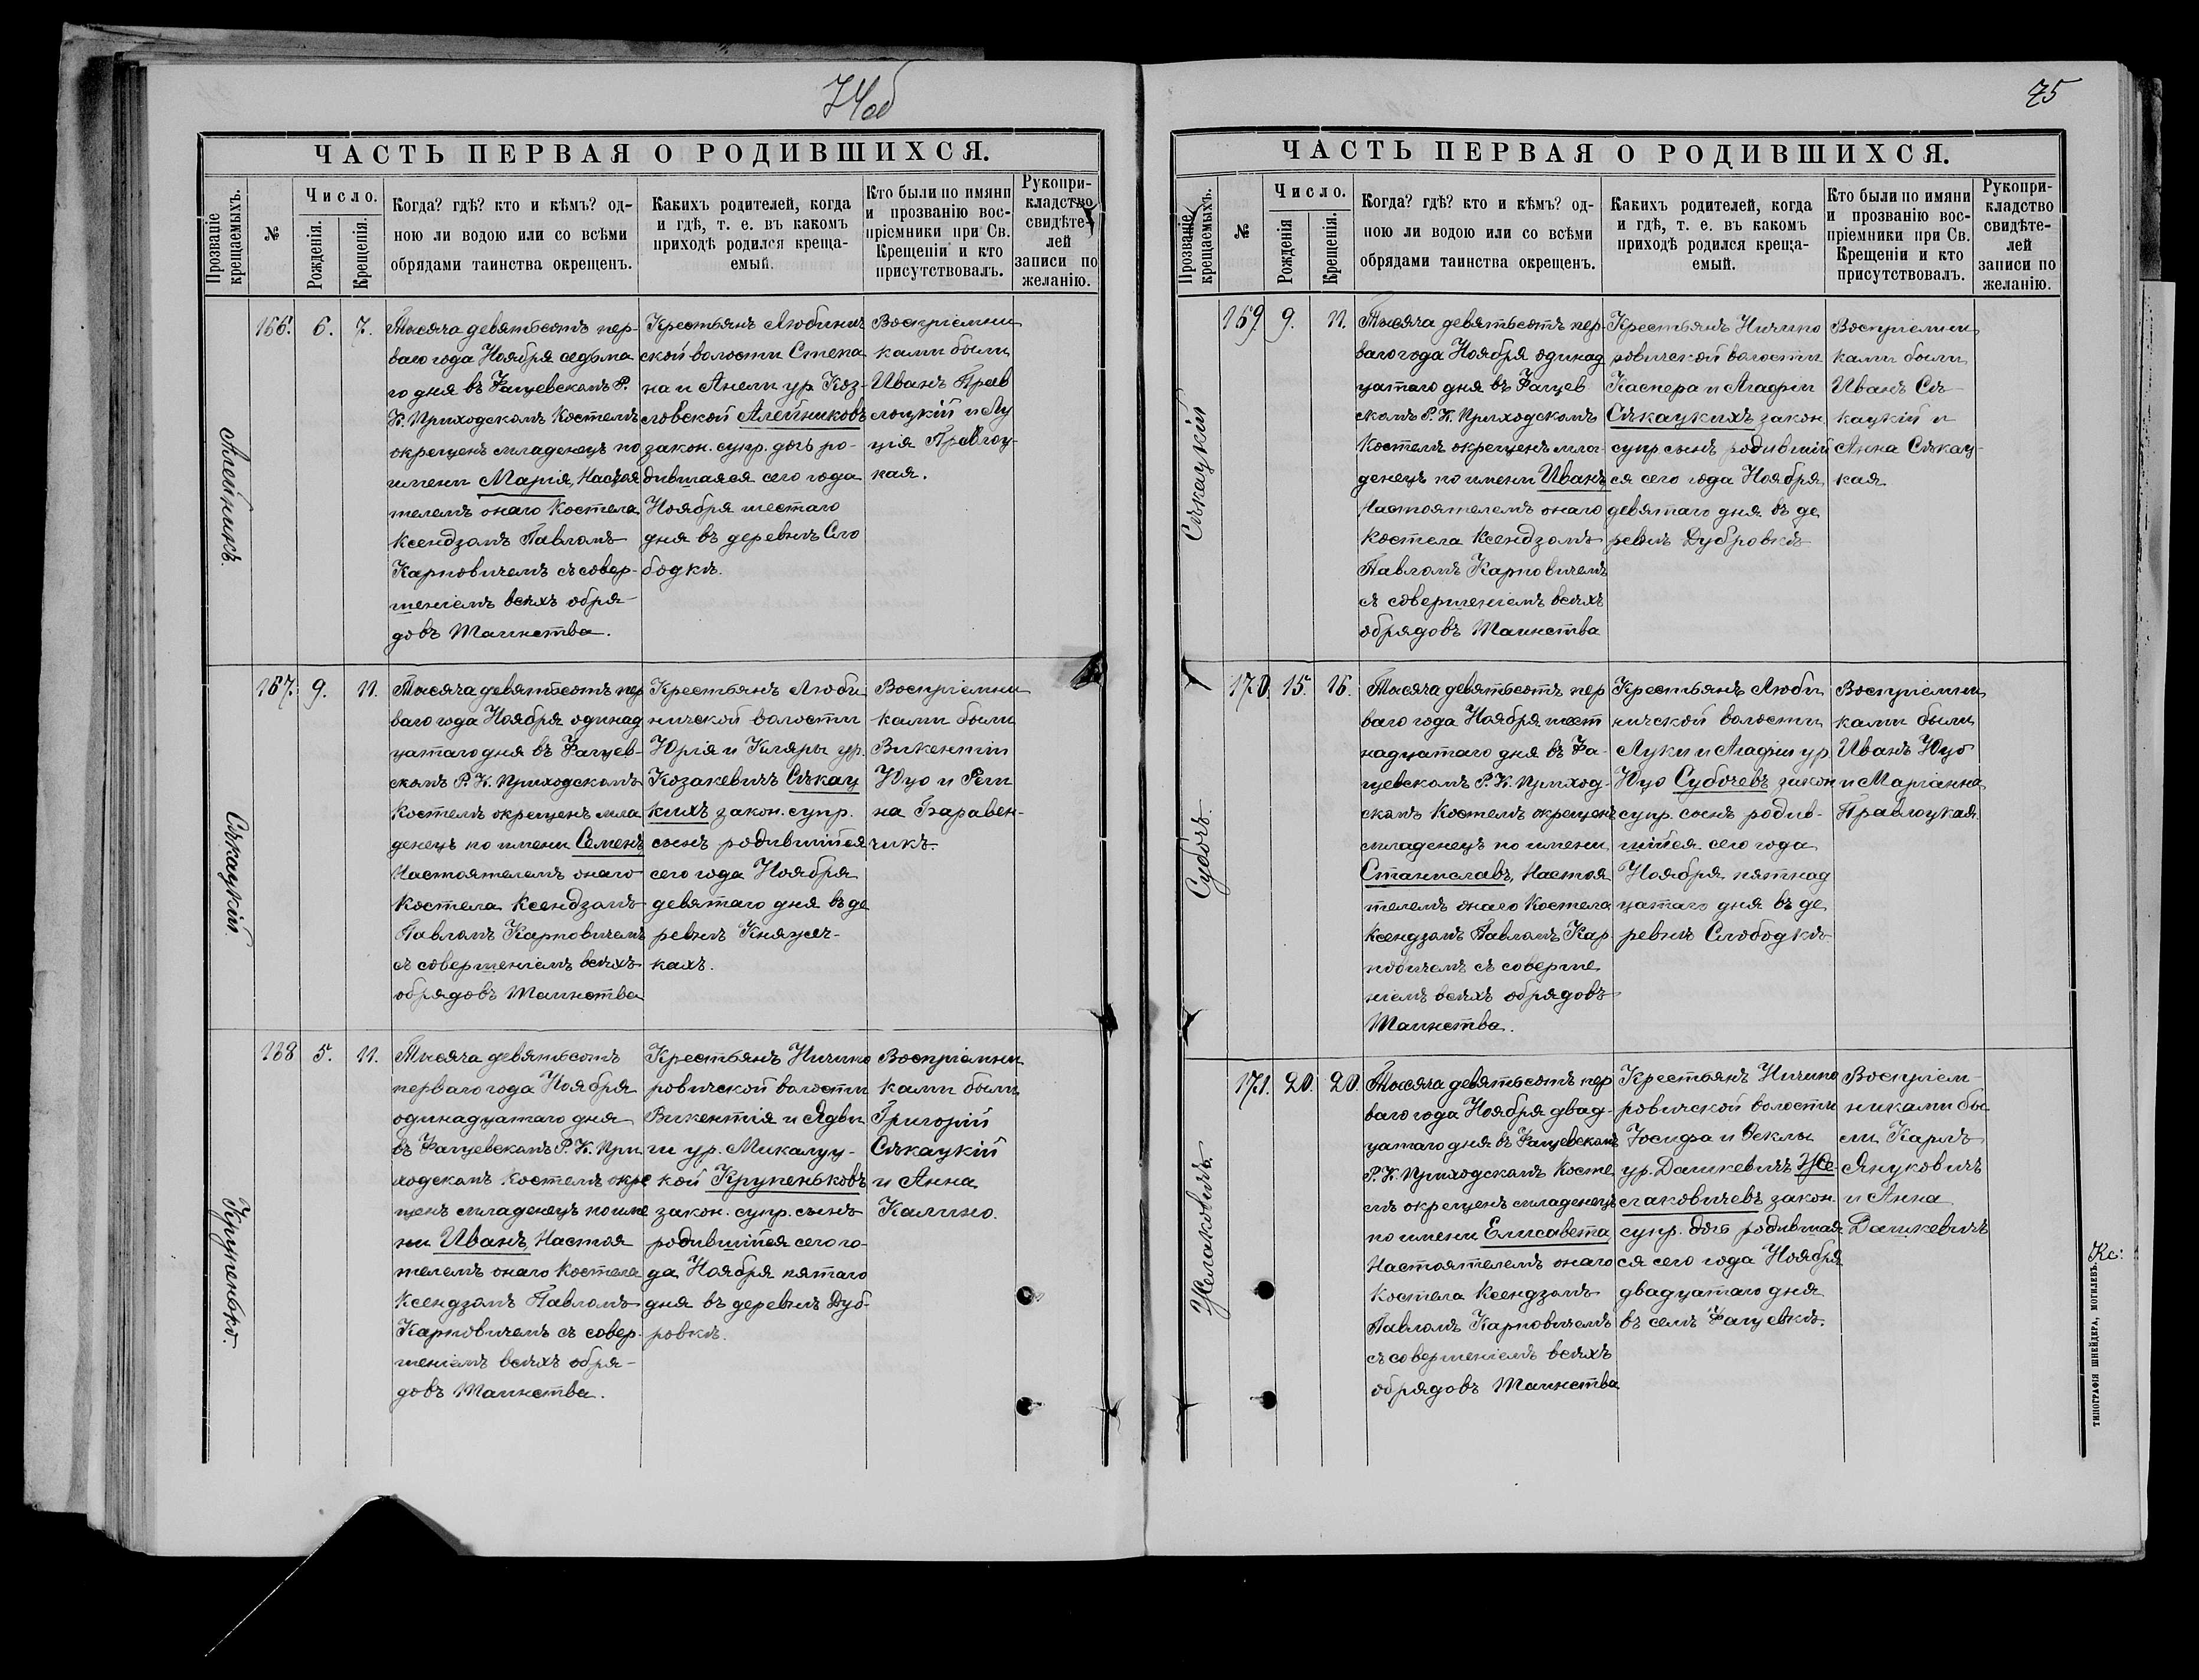 74об
ЧАСТЬ ПЕРВАЯ О РОДИВШИХСЯ.
Прозваніе крещаемыхъ.
№
Число.
Рожденія.
Крещенія.
Когда? гдѣ? кто и кѣмъ? од-
ною ли водою или со всѣми
обрядами таинства окрещенъ.
Какихъ родителей, когда
и гдѣ, т. е. въ какомъ
приходѣ родился креща-
емый.
Кто были по имяни
и прозванію вос-
пріемники при Св.
Крещеніи и кто
присутствовалъ.
Рукопри-
кладство
свидѣте-
лей
записи по
желанію.
Алейникъ.
166.
6.
7.
Тысяча девятьсотъ пер-
ваго года Ноября седьма
го дня въ Фащевскомъ Р.
К. Приходскомъ Костелѣ
окрещенъ младенецъ по
имени Марія, Настоя
телемъ онаго Костела
Ксендзомъ Павломъ
Карповичемъ съ совер-
шеніемъ всѣхъ обря-
довъ Таинства.
Крестьянъ Любинич
ской волости Степа
на и Анели ур. Коз-
ловской Алейниковъ
закон. супр. дочь ро-
дившаяся сего года
Ноября шестаго
дня въ деревнѣ Сло
бодкѣ.
Воспріемни
ками были
Иванъ Прав
лоцкій и Лу
ція Правлоц-
кая.
Сѣкацкій
167.
9.
11.
Тысяча девятьсотъ пер
ваго года Ноября одинад
цатаго дня въ Фащев-
скомъ Р. К. Приходскомъ
Костелѣ окрещенъ мла
денецъ по имени Семенъ
Настоятелемъ онаго
Костела Ксендзомъ
Павломъ Карповичемъ
съ совершеніемъ всѣхъ
обрядовъ Таинства
Крестьянъ Люби
ничской волости
Юрія и Кляры ур.
Козакевичъ Сѣкац
кихъ закон. супр.
сынъ родившійся
сего года Ноября
девятаго дня въ де
ревнѣ Княжич-
кахъ.
Воспріемни
ками были
Викентій
Юцо и Реги
на Баравен-
чикъ.
Крупенько.
168
5.
11.
Тысяча девятьсотъ
перваго года Ноября
одинадцатаго дня
въ Фащевскомъ Р. К. При
ходскомъ Костелѣ окре
щенъ младенецъ по име
ни Иванъ, Настоя
телемъ онаго Костела
Ксендзомъ Павломъ
Карповичемъ съ совер-
шеніемъ всѣхъ обря-
довъ Таинства.
Крестьянъ Ничипо
ровичской волости
Викентія и Ядви
ги ур. Микалуц-
кой Крупеньковъ
закон. супр. сынъ
родившійся сего го-
да Ноября пятаго
дня въ деревнѣ Дуб-
ровкѣ.
Воспріемни
ками были
Григорій
Сѣкацкій
и Анна
Калино.
75
ЧАСТЬ ПЕРВАЯ О РОДИВШИХСЯ.
Прозваніе крещаемыхъ.
№
Число.
Рожденія
Крещенія.
Когда? гдѣ? кто и кѣмъ? од-
ною ли водою или со всѣми
обрядами таинства окрещенъ.
Какихъ родителей, когда
и гдѣ, т. е. въ какомъ
приходѣ родился креща-
емый.
Кто были по имяни
и прозванію вос-
пріемники при Св.
Крещеніи и кто
присутствовалъ.
Рукопри-
кладство
свидѣте-
лей
записи по
желанію.
Сѣкацкій
169
9.
11.
Тысяча девятьсотъ пер
ваго года Ноября одинад
цатаго дня въ Фащев
скомъ Р. К. Приходскомъ
Костелѣ окрещенъ мла-
денецъ по имени Иванъ
Настоятелемъ онаго
Костела Ксендзомъ
Павломъ Карповичемъ
съ совершеніемъ всѣхъ
обрядовъ Таинства
Крестьянъ Ничипо
ровичской волости
Каспера и Агафіи
Сѣкацкихъ закон.
супр. сынъ родившій
ся сего года Ноября
девятаго дня въ де
ревнѣ Дубровкѣ
Воспріемни
ками были
Иванъ Сѣ-
кацкій и
Анна Сѣкац-
кая
Субочъ.
170.
15.
16.
Тысяча девятьсотъ пер
ваго года Ноября шест
надцатаго дня въ Фа-
щевскомъ Р. К. Приход-
скомъ Костелѣ окрещенъ
младенецъ по имени
Станиславъ, Настоя
телемъ онаго Костела
Ксендзомъ Павломъ Кар
повичемъ съ соверше
ніемъ всѣхъ обрядовъ
Таинства.
Крестьянъ Люби
ничской волости
Луки и Агафіи ур
Юцо Субочевъ закон
супр. сынъ родив-
шійся сего года
Ноября пятнад
цатаго дня въ де
ревнѣ Слободкѣ
Воспріемни
ками были
Иванъ Юцо
и Маріанна
Правлоцкая.
Желаковичъ.
171.
20.
20.
Тысяча девятьсотъ пер
ваго года Ноября двад-
цатаго дня въ Фащевскомъ
Р. К. Приходскомъ Косте
лѣ окрещенъ младенецъ
по имени Елисавета
Настоятелемъ онаго
Костела Ксендзомъ
Павломъ Карповичемъ
съ совершеніемъ всѣхъ
обрядовъ Таинства
Крестьянъ Ничипо
ровичской волости
Іосифа и Ѳеклы
ур. Дашкевичъ Же-
лаковичевъ закон.
супр. дочь родившая
ся сего года Ноября
двадцатаго дня
въ селѣ Фащевкѣ.
Воспріем-
никами бы
ли Карлъ
Януковичъ
и Анна
Дашкевичъ
Кс:
ТИПОГРАФІЯ ШНЕЙДЕРА, МОГИЛЕВЪ.